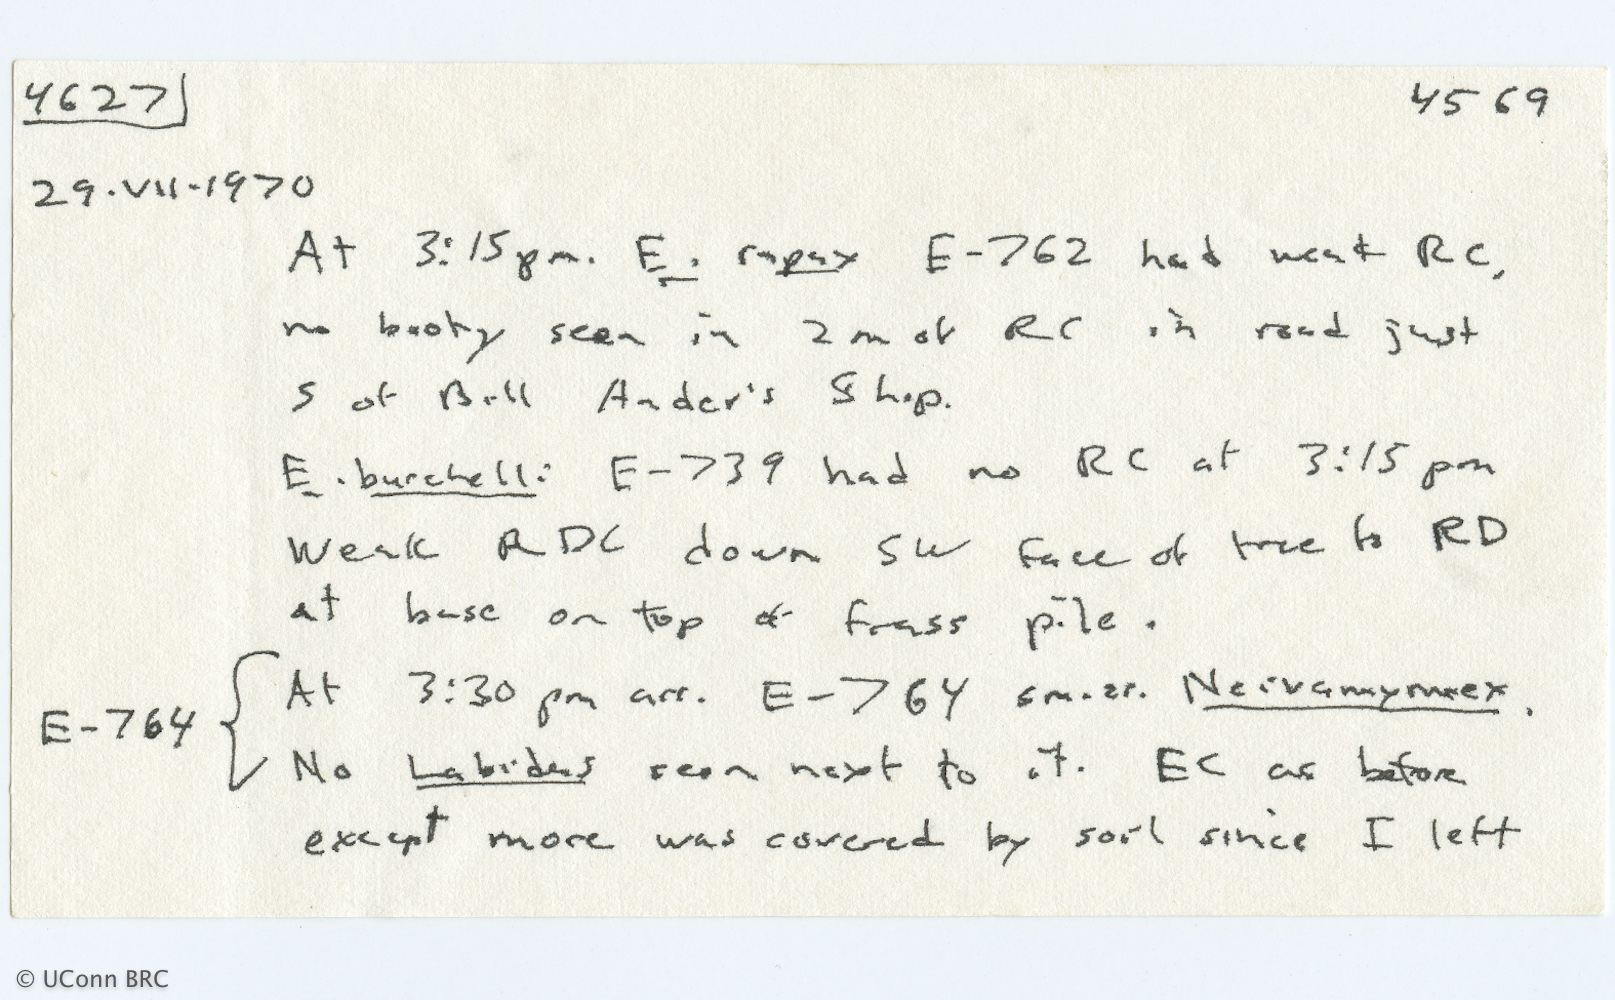 4627 4569
29·VII·1970
At 3:15 pm. E. rapax E-762 had weak RC,
no booty seen in 2 m of RC in road just
S of Bill Ander's Shop.
E. burchelli E-739 had no RC at 3:15 pm
Weak RDC down SW face of tree to RD
at base on top of frass pile.
At 3:30 pm arr. E-764 Neivamyrmex.
E-764
No Labidus seen next to it. EC as before
except more was covered by soil since I left
© UConn BRC